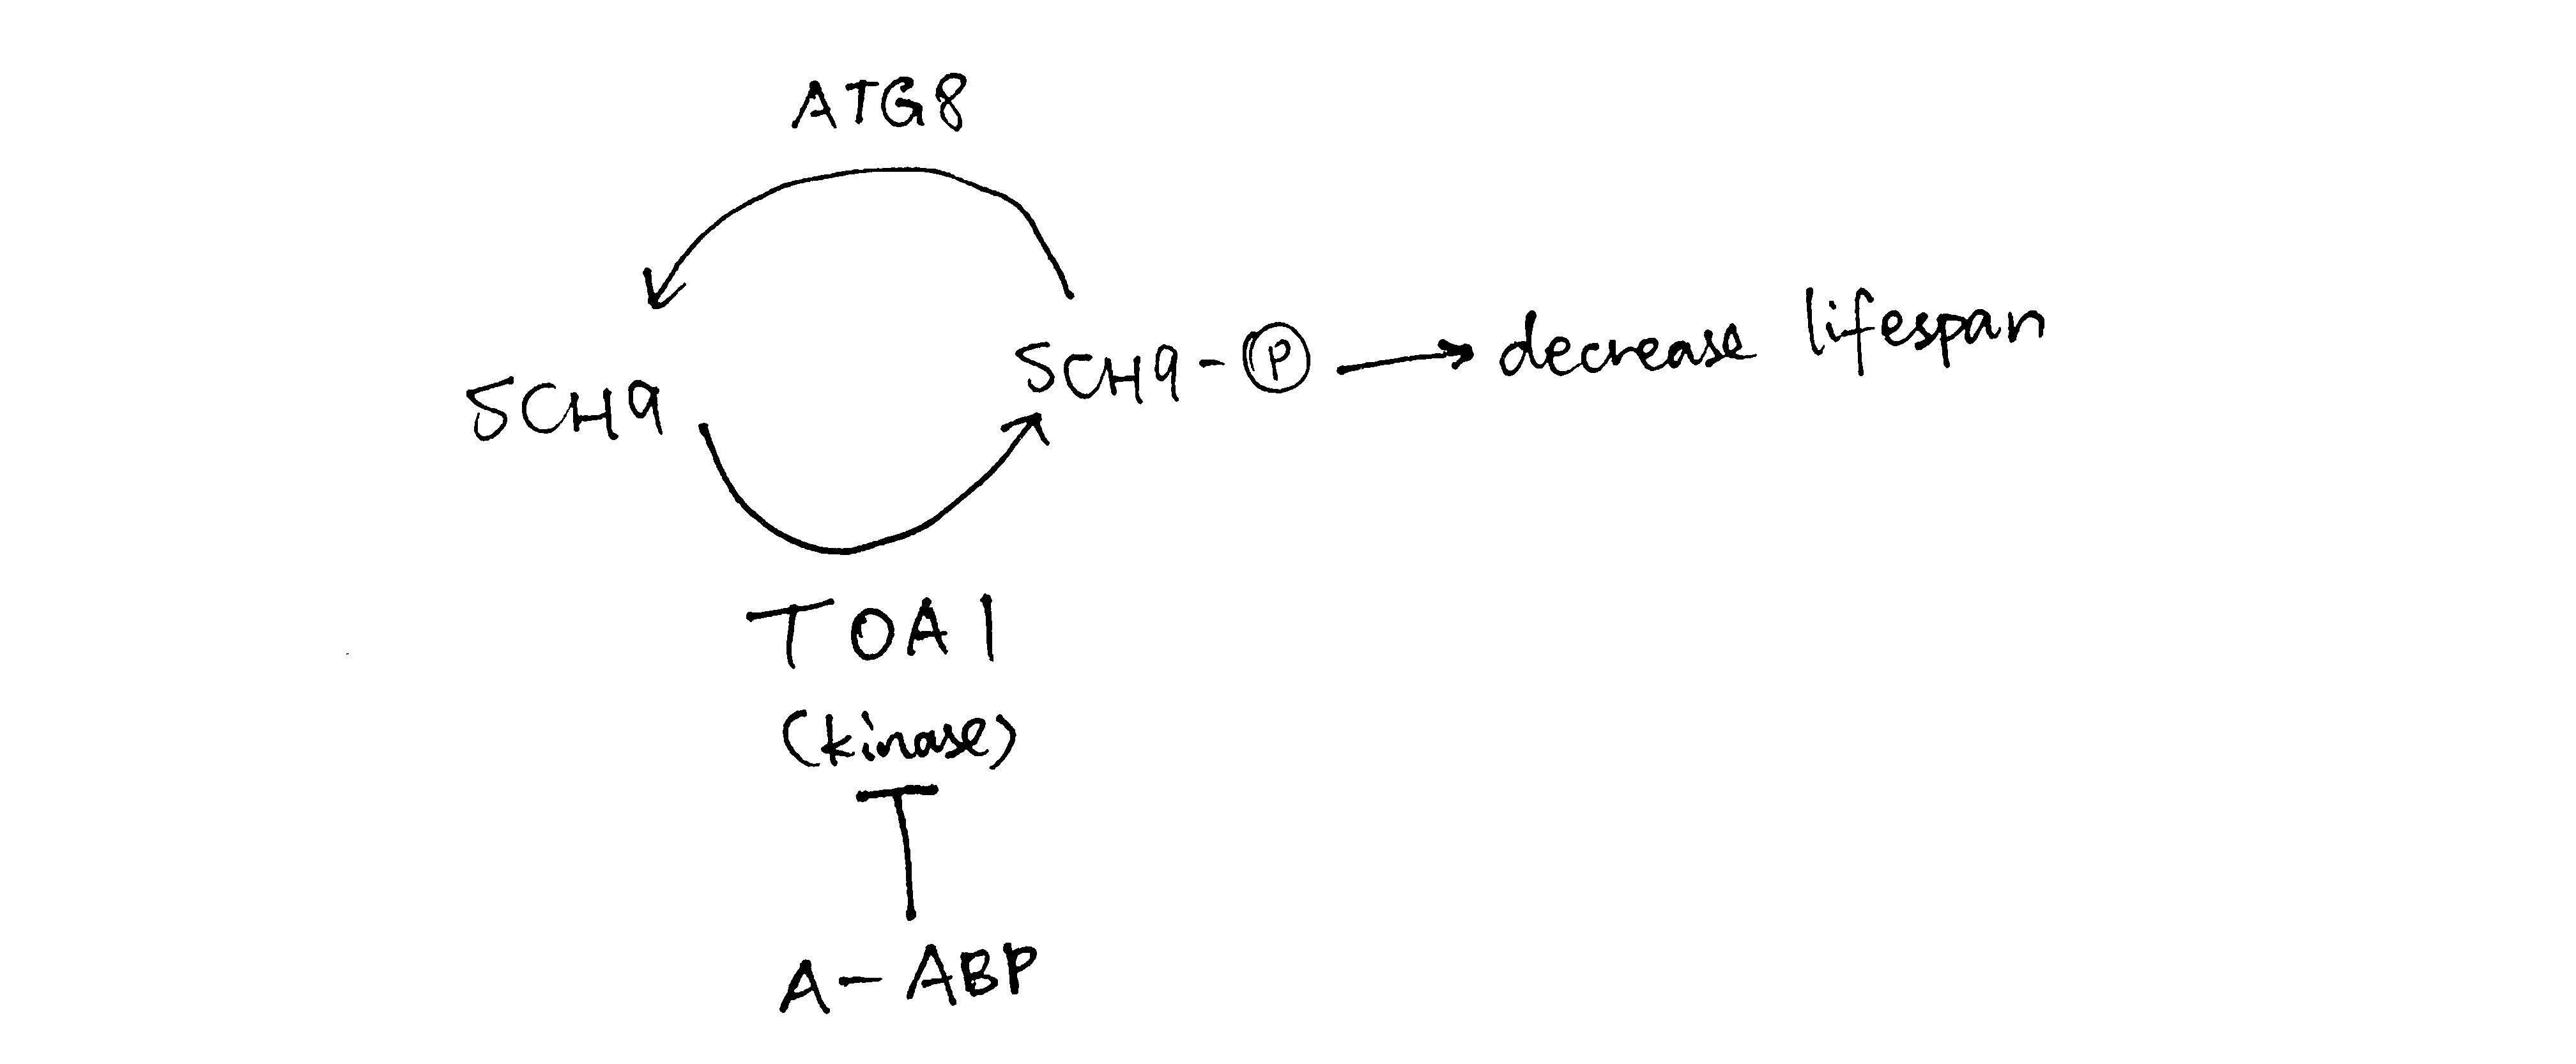 ATG8
SCH9
SCH9-Ⓟ → decrease lifespan
TOA1
(kinase)
A-ABP